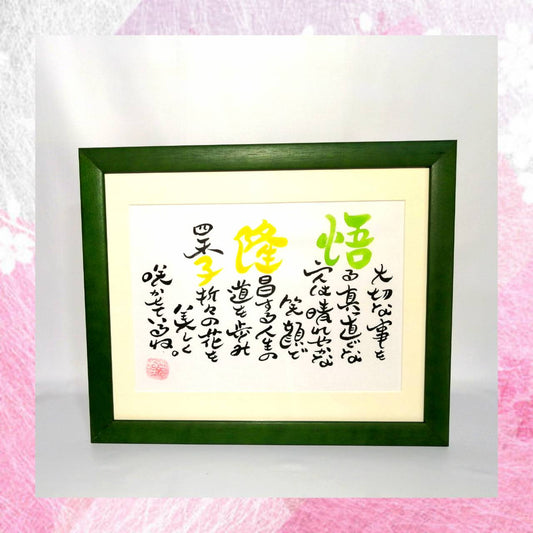 大切な事を
悟る真直ぐな
心は晴れやかな
笑顔で
隆昌する人生の
道を歩み
四季折々の花を
美しく
咲かせているね。